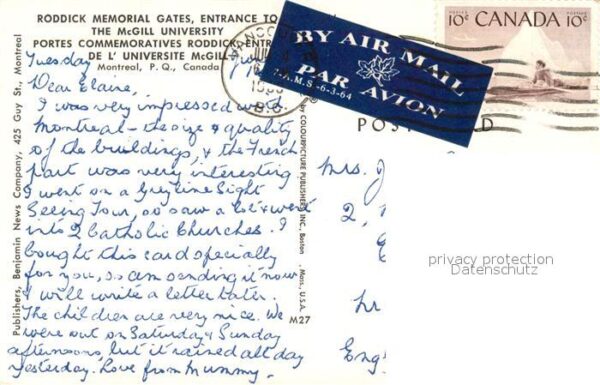 RODDICK MEMORIAL GATES, ENTRANCE TO
THE McGILL UNIVERSITY
PORTES COMMEMORATIVES RODDICK, ENTR
DE L' UNIVERSITE McGILL
Montreal, P. Q., Canada
Tuesday
Dear Elaine,
I was very impressed with
Montreal - the size & quality
of the buildings, & the French
part was very interesting
I went on a Grey Line Sight
Seeing Tour, so saw a lot & went
into 2 Catholic Churches. I
bought this card specially
for you, so am sending it now
I will write a letter later.
The children are very nice. We
were out on Saturday & Sunday
afternoons, but it rained all day
yesterday. Love from Mummy.
Publishers, Benjamin News Company, 425 Guy St., Montreal
COLOURPICTURE PUBLISHERS, INC., Boston, Mass., U.S.A.
M27
VANCOUVER
B.C.
BY AIR MAIL
PAR AVION
-6-3-64
POSTES POSTAGE
10c CANADA 10c
POST CARD
Mrs. J
2,
E
Eng
privacy protection
Datenschutz